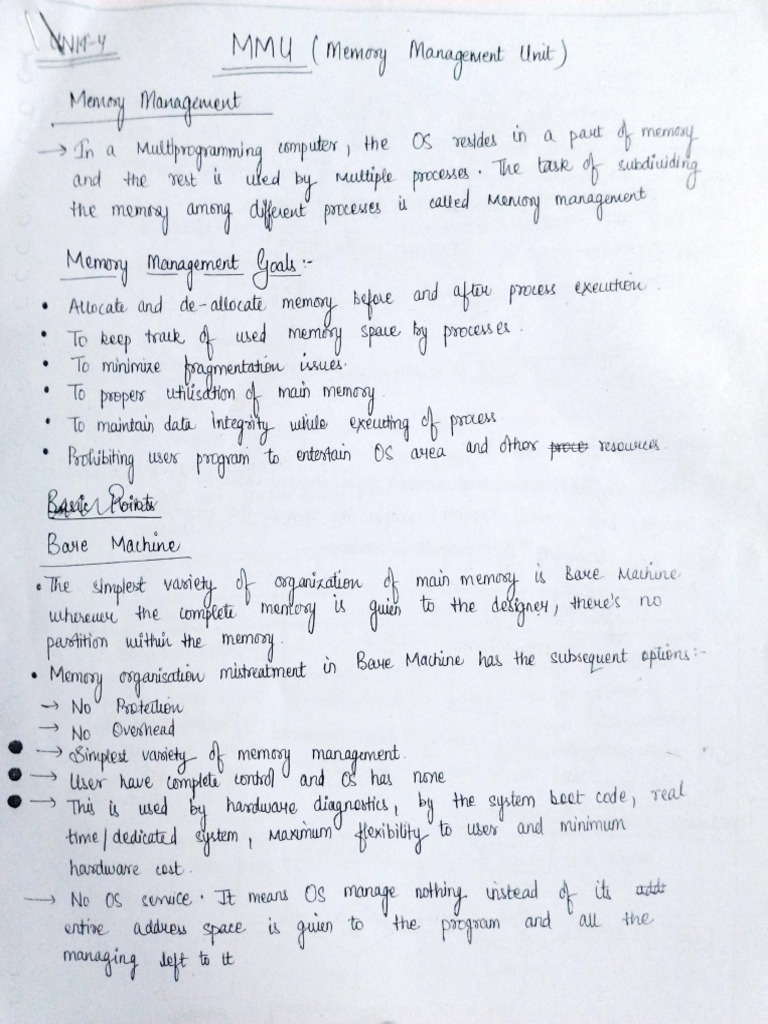 UNIT-4
MMU (Memory Management Unit)
Memory Management
→ In a Multiprogramming computer, the OS resides in a part of memory
and the rest is used by multiple processes. The task of subdividing
the memory among different processes is called Memory management
Memory Management Goals:-
• Allocate and de-allocate memory before and after process execution.
• To keep track of used memory space by processes.
• To minimize fragmentation issues.
• To proper utilisation of main memory.
• To maintain data integrity while executing of process.
• Prohibiting user program to entertain OS area and other proce resources.
Basic Points
Bare Machine
• The simplest variety of organization of main memory is Bare Machine
wherever the complete memory is given to the designer, there's no
partition within the memory.
• Memory organisation mistreatment in Bare Machine has the subsequent options:-
→ No Protection
→ No Overhead
→ Simplest variety of memory management.
→ User have complete control and OS has none
→ This is used by hardware diagnostics, by the system boot code, real
time/dedicated system, Maximum flexibility to user and minimum
hardware cost.
→ No OS service. It means OS manage nothing instead of its addr
entire address space is given to the program and all the
managing left to it